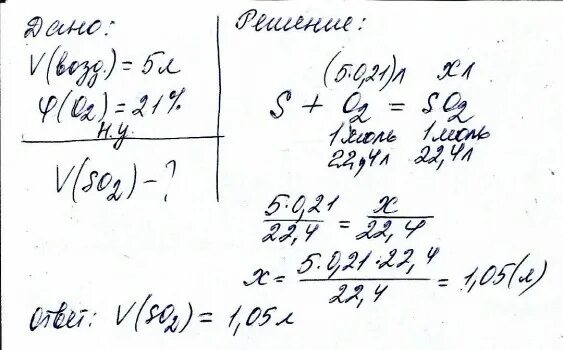 Дано:
V(возд.) = 5л
φ(O₂) = 21%
н.у.
V(SO₂) - ?
Решение:
(5·0,21)л хл
S + O₂ = SO₂
1моль 1моль
22,4л 22,4л
5·0,21 / 22,4 = х / 22,4
х = 5·0,21·22,4 / 22,4 = 1,05(л)
Ответ: V(SO₂) = 1,05л